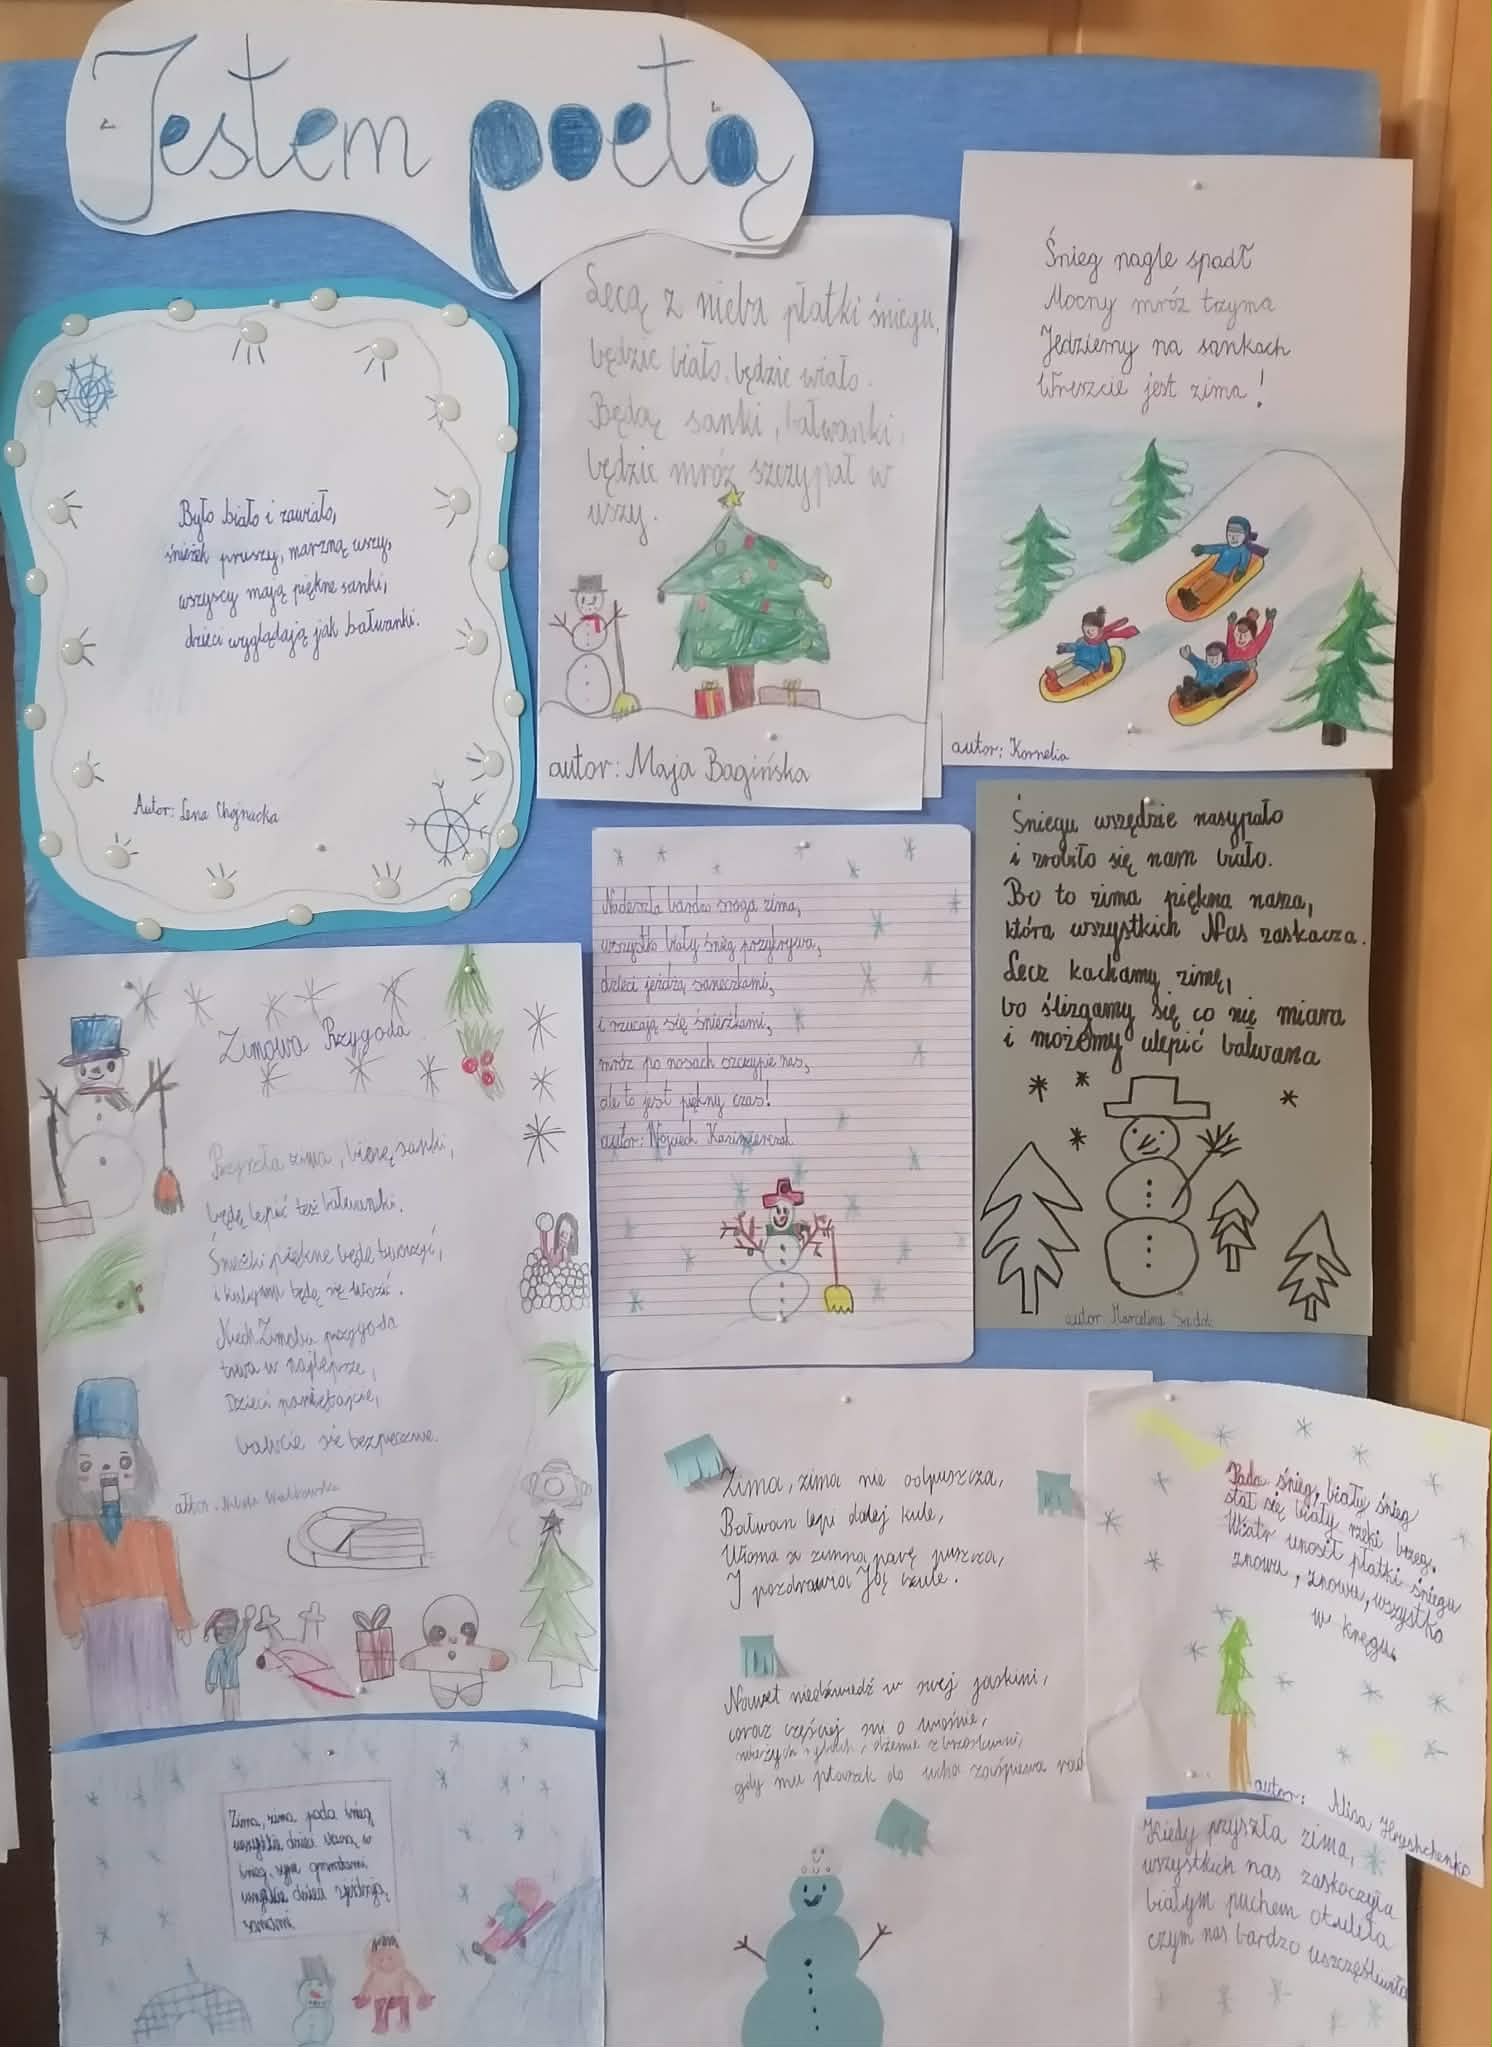 Jestem poetą
Było biało i zawiało,
śnieżek pruszy, marzną uszy,
wszyscy mają piękne sanki,
dzieci wyglądają jak bałwanki.
Autor: Lena Chojnacka
Lecą z nieba płatki śniegu,
będzie biało, będzie wiało.
Będą sanki, bałwanki,
będzie mróz szczypał w
uszy.
autor: Maja Bagińska
Śnieg nagle spadł
Mocny mróz trzyma
Jedziemy na sankach
Wreszcie jest zima!
autor: Kornelia
Śniegu wszędzie nasypało
i zrobiło się nam biało.
Bo to zima piękna nasza,
która wszystkich Nas zaskacza.
Lecz kachamy zimę,
bo ślizgamy się co nie miara
i możemy ulepić bałwana
autor Marcelina
Nadeszła bardzo sroga zima,
wszystko biały śnieg przykrywa,
dzieci jeżdżą saneczkami,
i rzucają się śnieżkami,
mróz po nosach szczypie nas,
ale to jest piękny czas!
autor: Wojciech Kazimierczak
Zimowa Przygoda
Przyszła zima, biorę sanki,
będę lepić też bałwanki.
Śnieżki piękne będę tworzyć,
i kuligami będę się
Niech Zimowa przygoda
trwa w najlepsze,
Dzieci pamiętajcie,
bawcie się bezpiecznie.
autor.
Zima, zima nie odpuszcza,
Bałwan lepi dalej kule,
Wiosna z zimną parę puszcza,
I pozdrawia Ją czule.
Nawet niedźwiedź w swej jaskini,
coraz częściej śni o wiośnie,
świeżych rybach, dżemie z brzoskwini,
gdy mu ptaszek do ucha zaśpiewa
Pada śnieg, biały śnieg
stał się biały rzeki brzeg.
Wiatr unosił płatki śniegu
znowu, znowu, wszystko
w kręgu.
autor: Alisa Hryshchenko
Zima, zima pada śnieg
wszystkie dzieci
śnieg, sypie
wszystkie dzieci zjeżdżają
sankami.
Kiedy przyszła zima,
wszystkich nas zaskoczyła
białym puchem otuliła
czym nas bardzo uszczęśliwiła